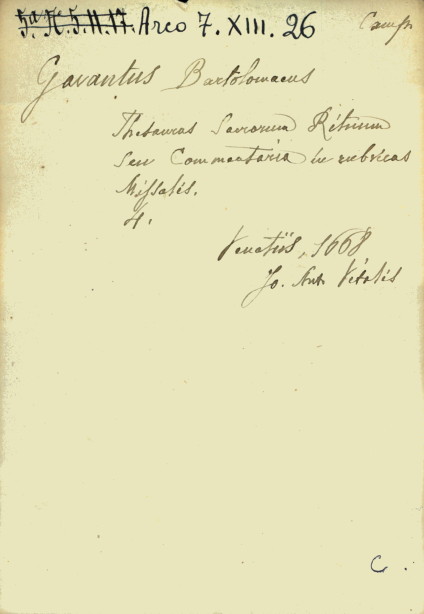 5ª K. 5. II. 17. Arco 7. XIII. 26
Camp.
Gavantus Bartolomaeus
Thesaurus Sacrorum Rituum
seu Commentaria in rubricas
Missalis.
4.
Venetiis, 1668
Jo. Ant. Vitalis
C.